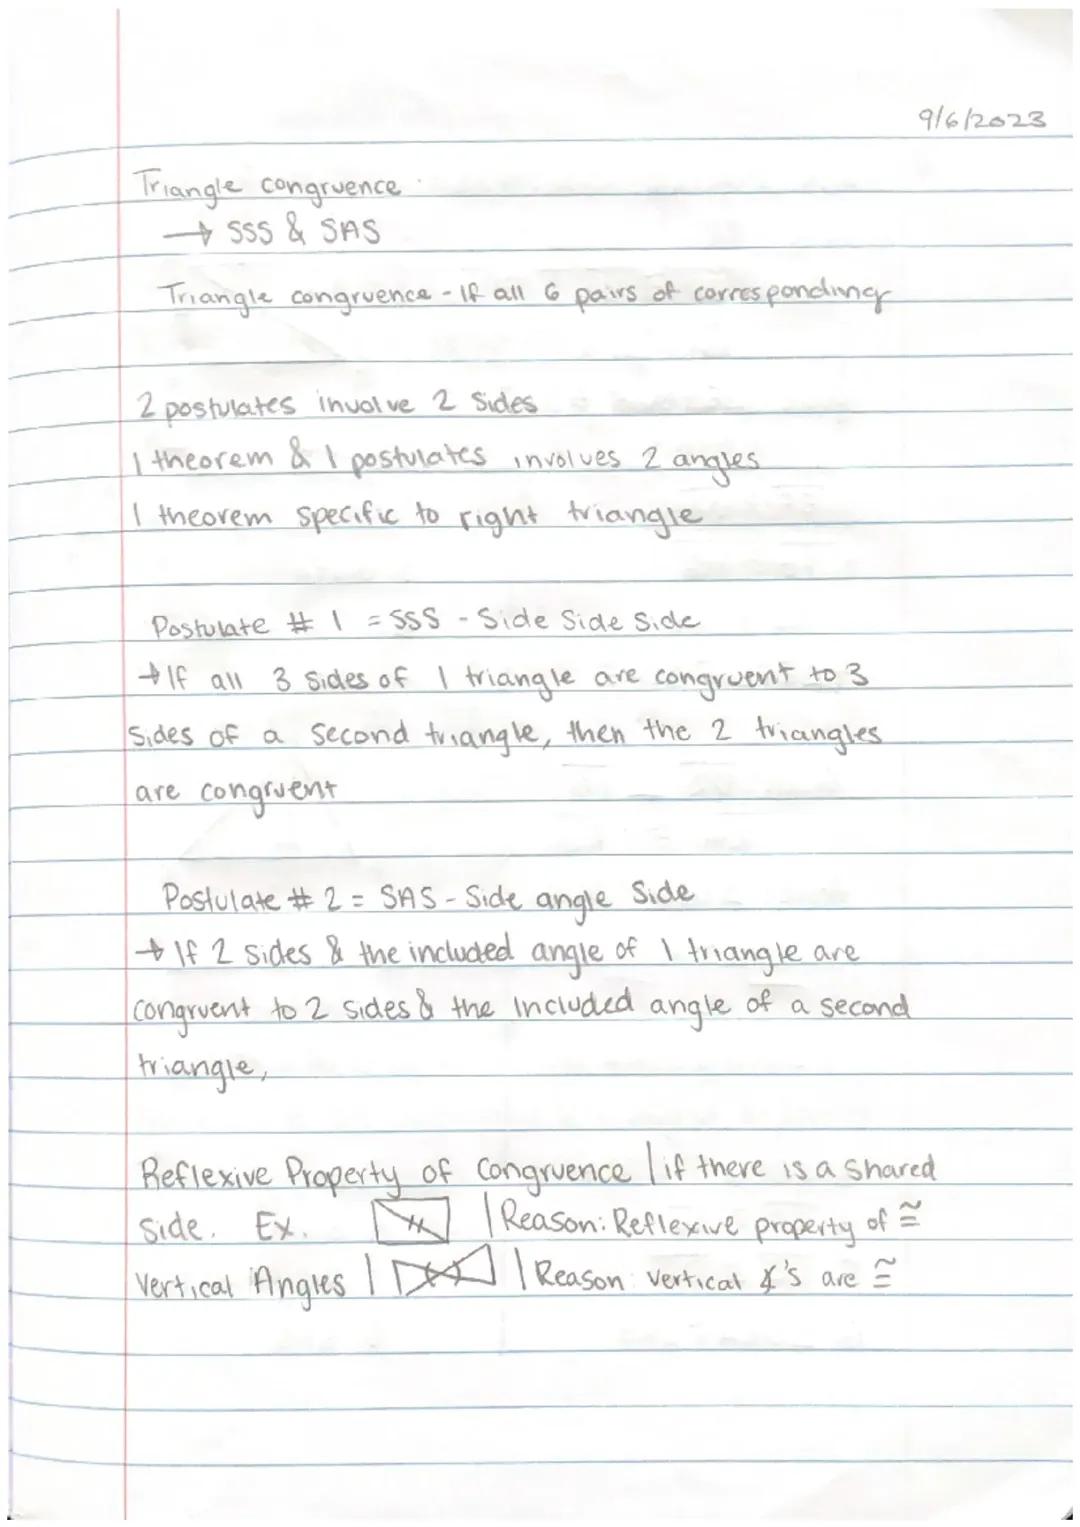 9/6/2023
Triangle congruence
→ SSS & SAS
Triangle congruence - If all 6 pairs of corresponding
2 postulates involve 2 sides
1 theorem & 1 postulates involves 2 angles
1 theorem specific to right triangle
Postulate # 1 = SSS - Side Side Side
→ If all 3 sides of 1 triangle are congruent to 3
sides of a second triangle, then the 2 triangles
are congruent
Postulate # 2 = SAS - Side angle Side
→ If 2 sides & the included angle of 1 triangle are
congruent to 2 sides & the included angle of a second
triangle,
Reflexive Property of Congruence | if there is a shared
side. Ex. | Reason: Reflexive property of ≅
Vertical Angles | | Reason: vertical ∡'s are ≅